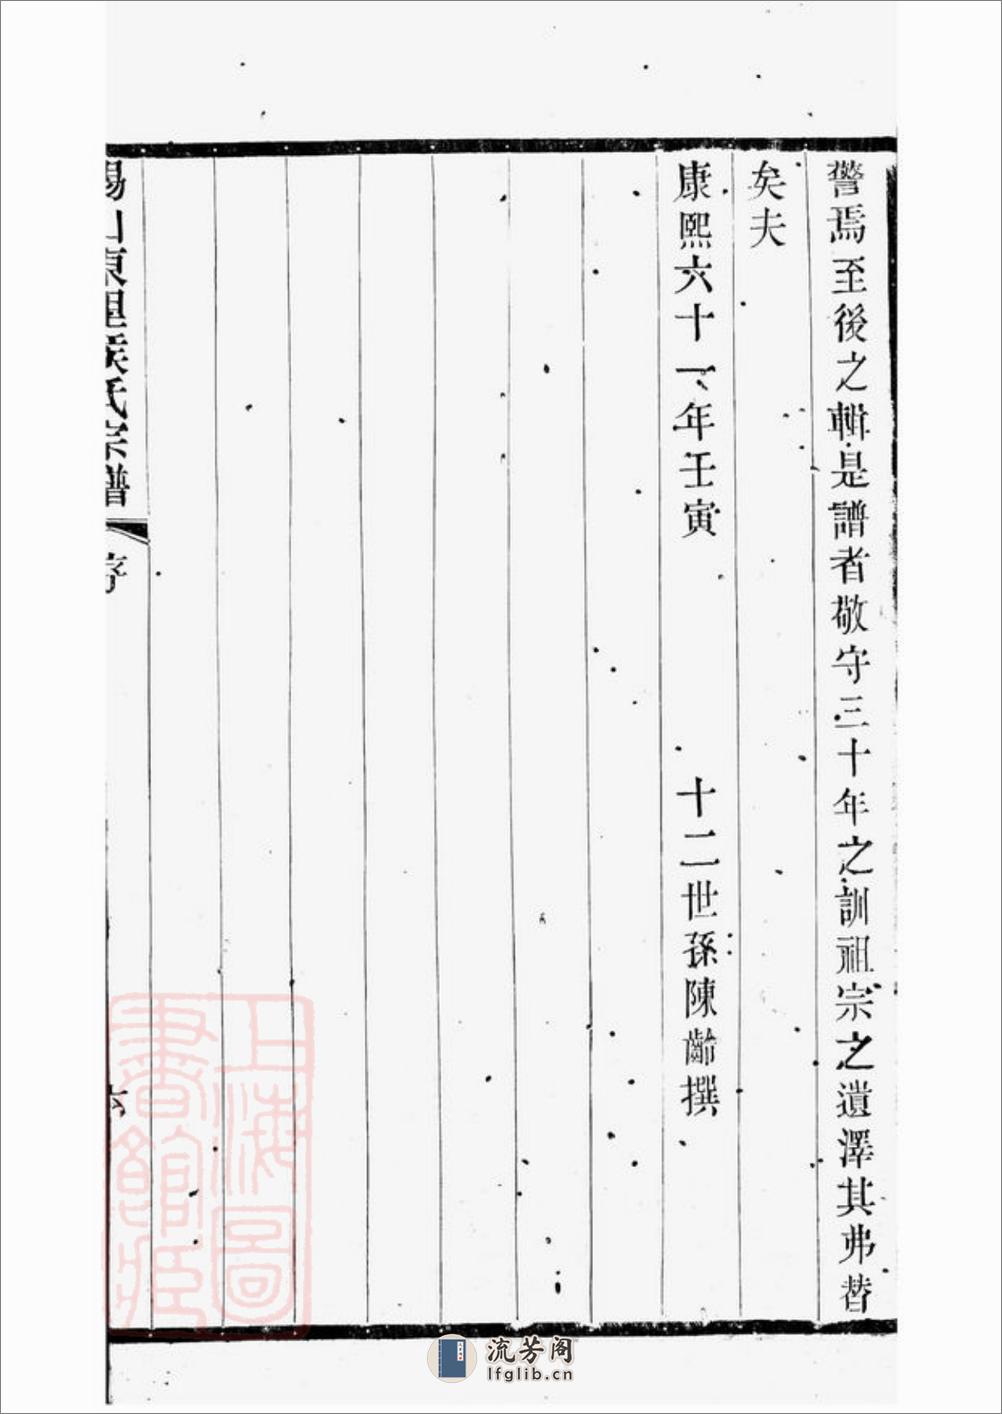 警焉至後之輯是譜者敬守三十年之訓祖宗之遺澤其弗替
矣夫
康熙六十一年壬寅
十二世孫陳齡撰
錫山東里侯氏宗譜
序
六
上海圖
書館藏
流芳阁
lfglib.cn